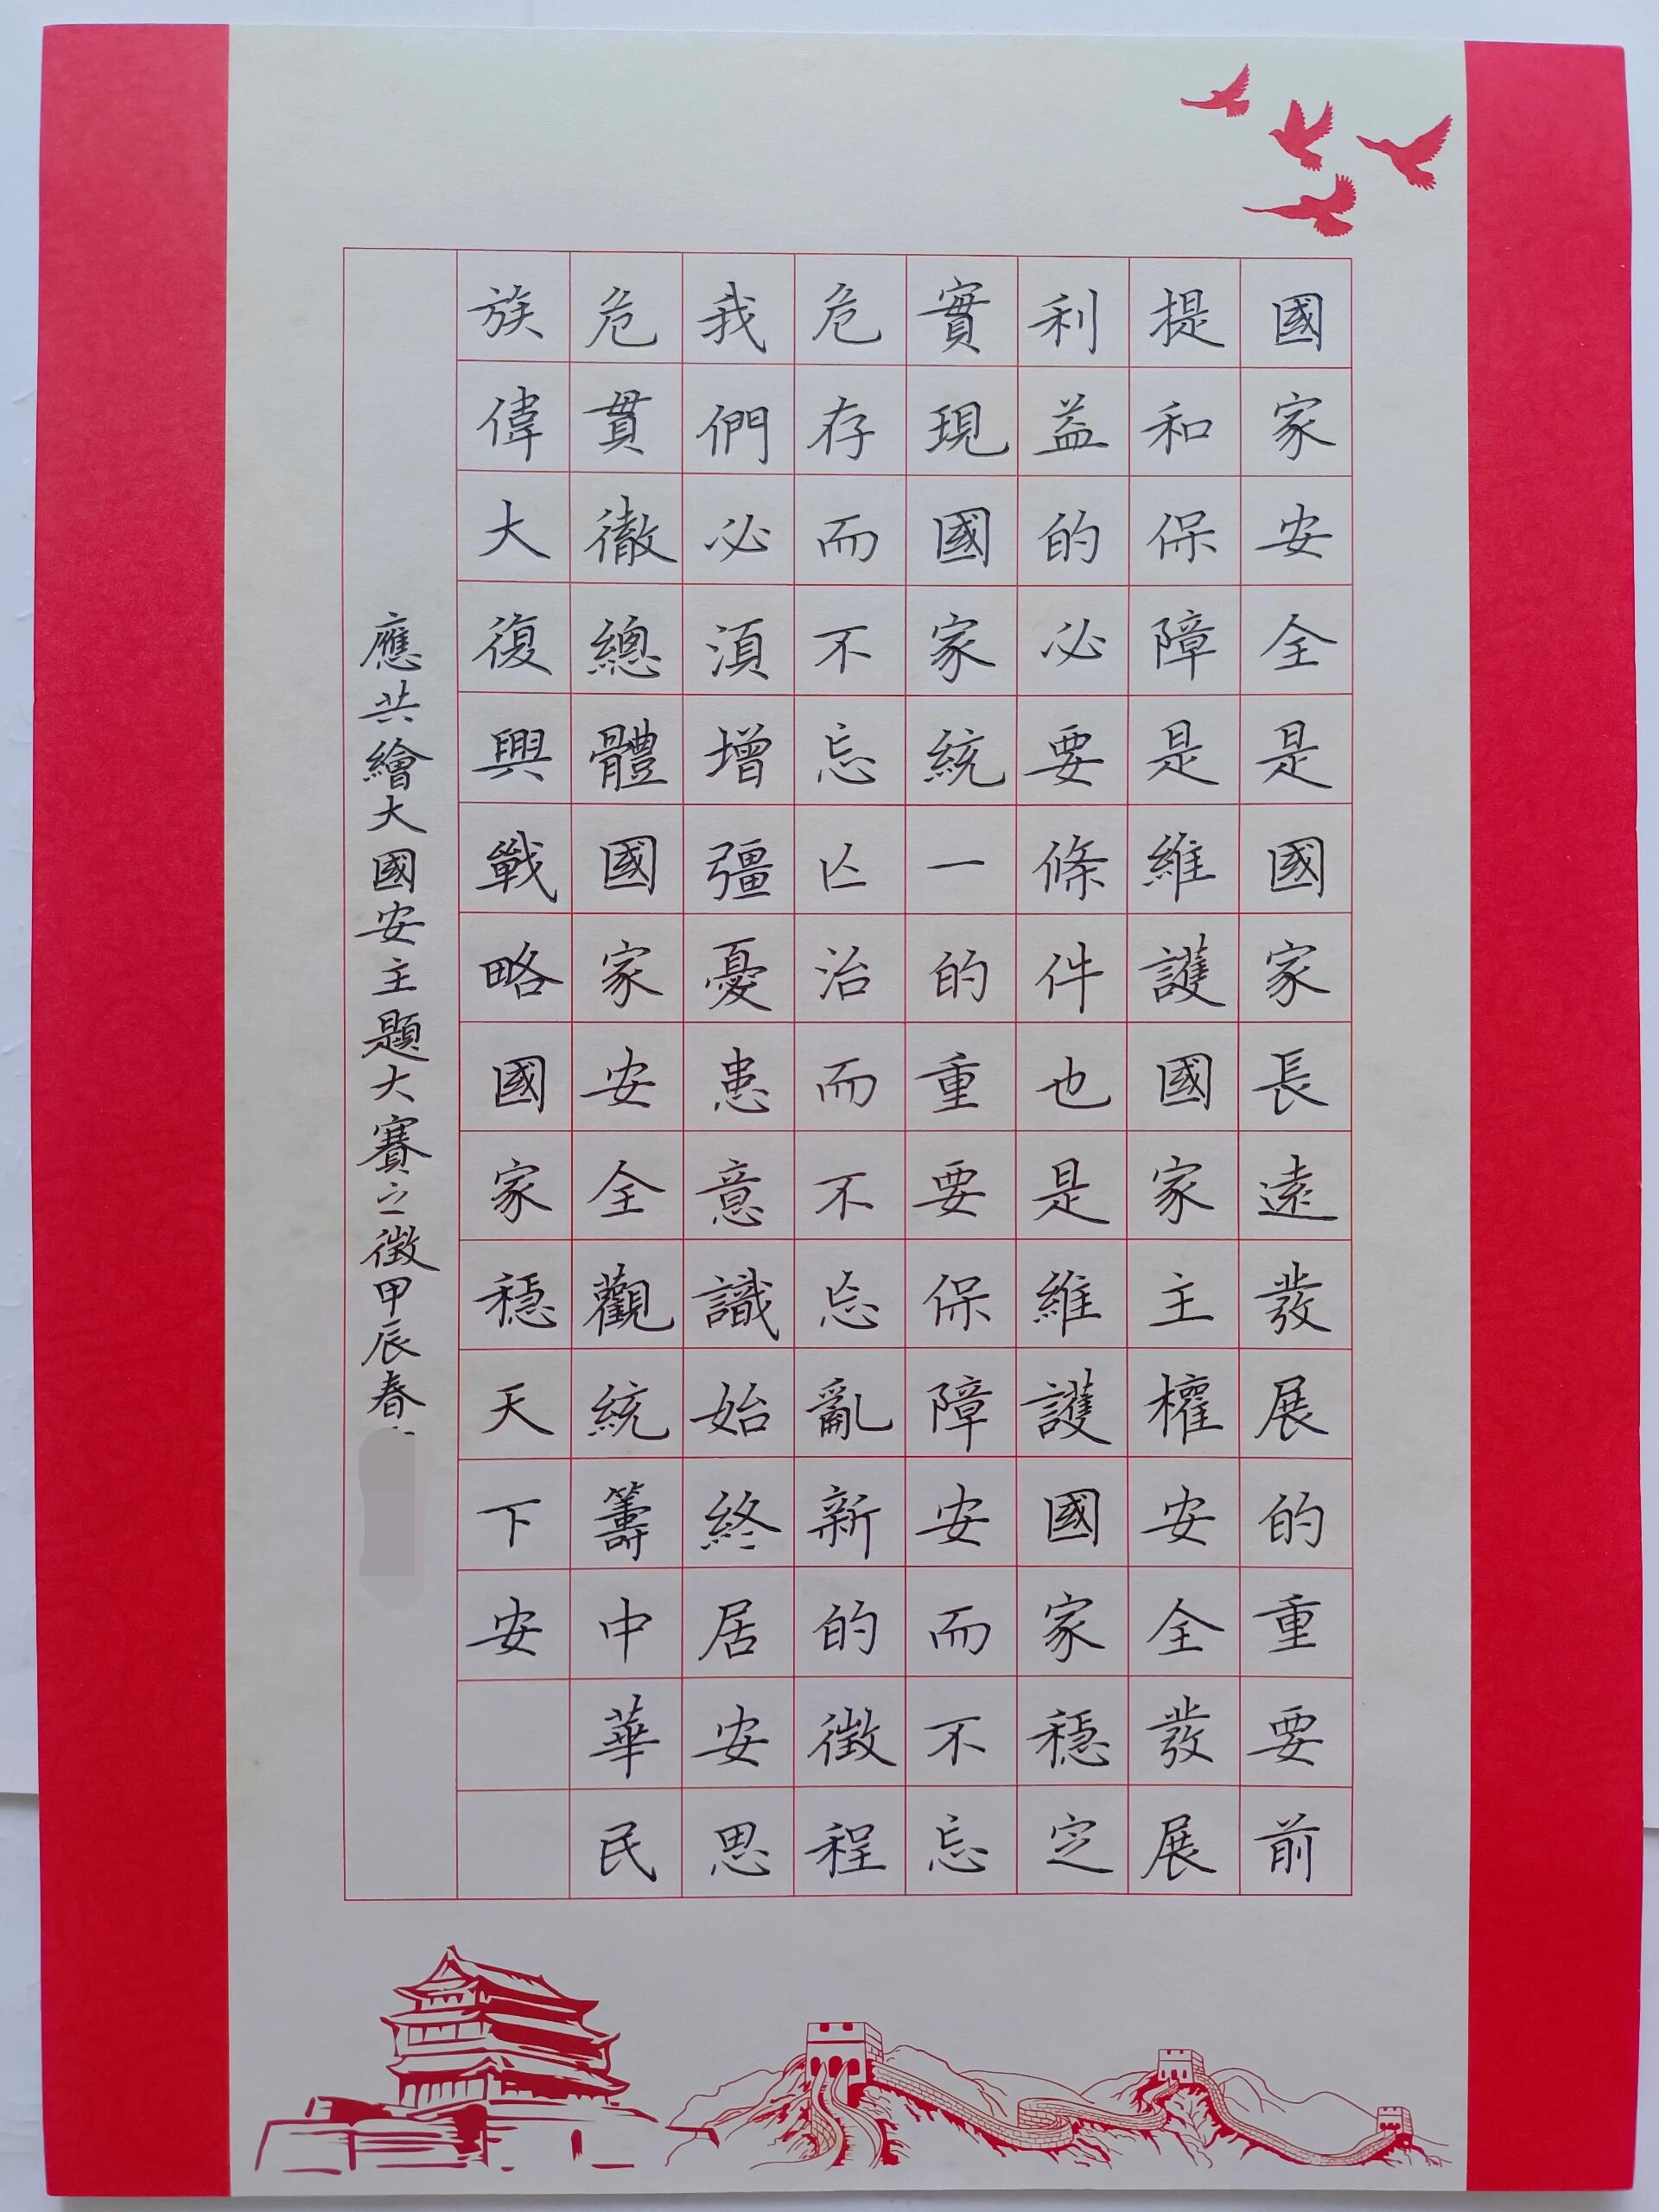 國家安全是國家長遠發展的重要前
提和保障是維護國家主權安全發展
利益的必要條件也是維護國家穩定
實現國家統一的重要保障安而不忘
危存而不忘亡治而不忘亂新的徵程
我們必須增彊憂患意識始終居安思
危貫徹總體國家安全觀統籌中華民
族偉大復興戰略國家穩天下安
應共繪大國安主題大賽之徵甲辰春